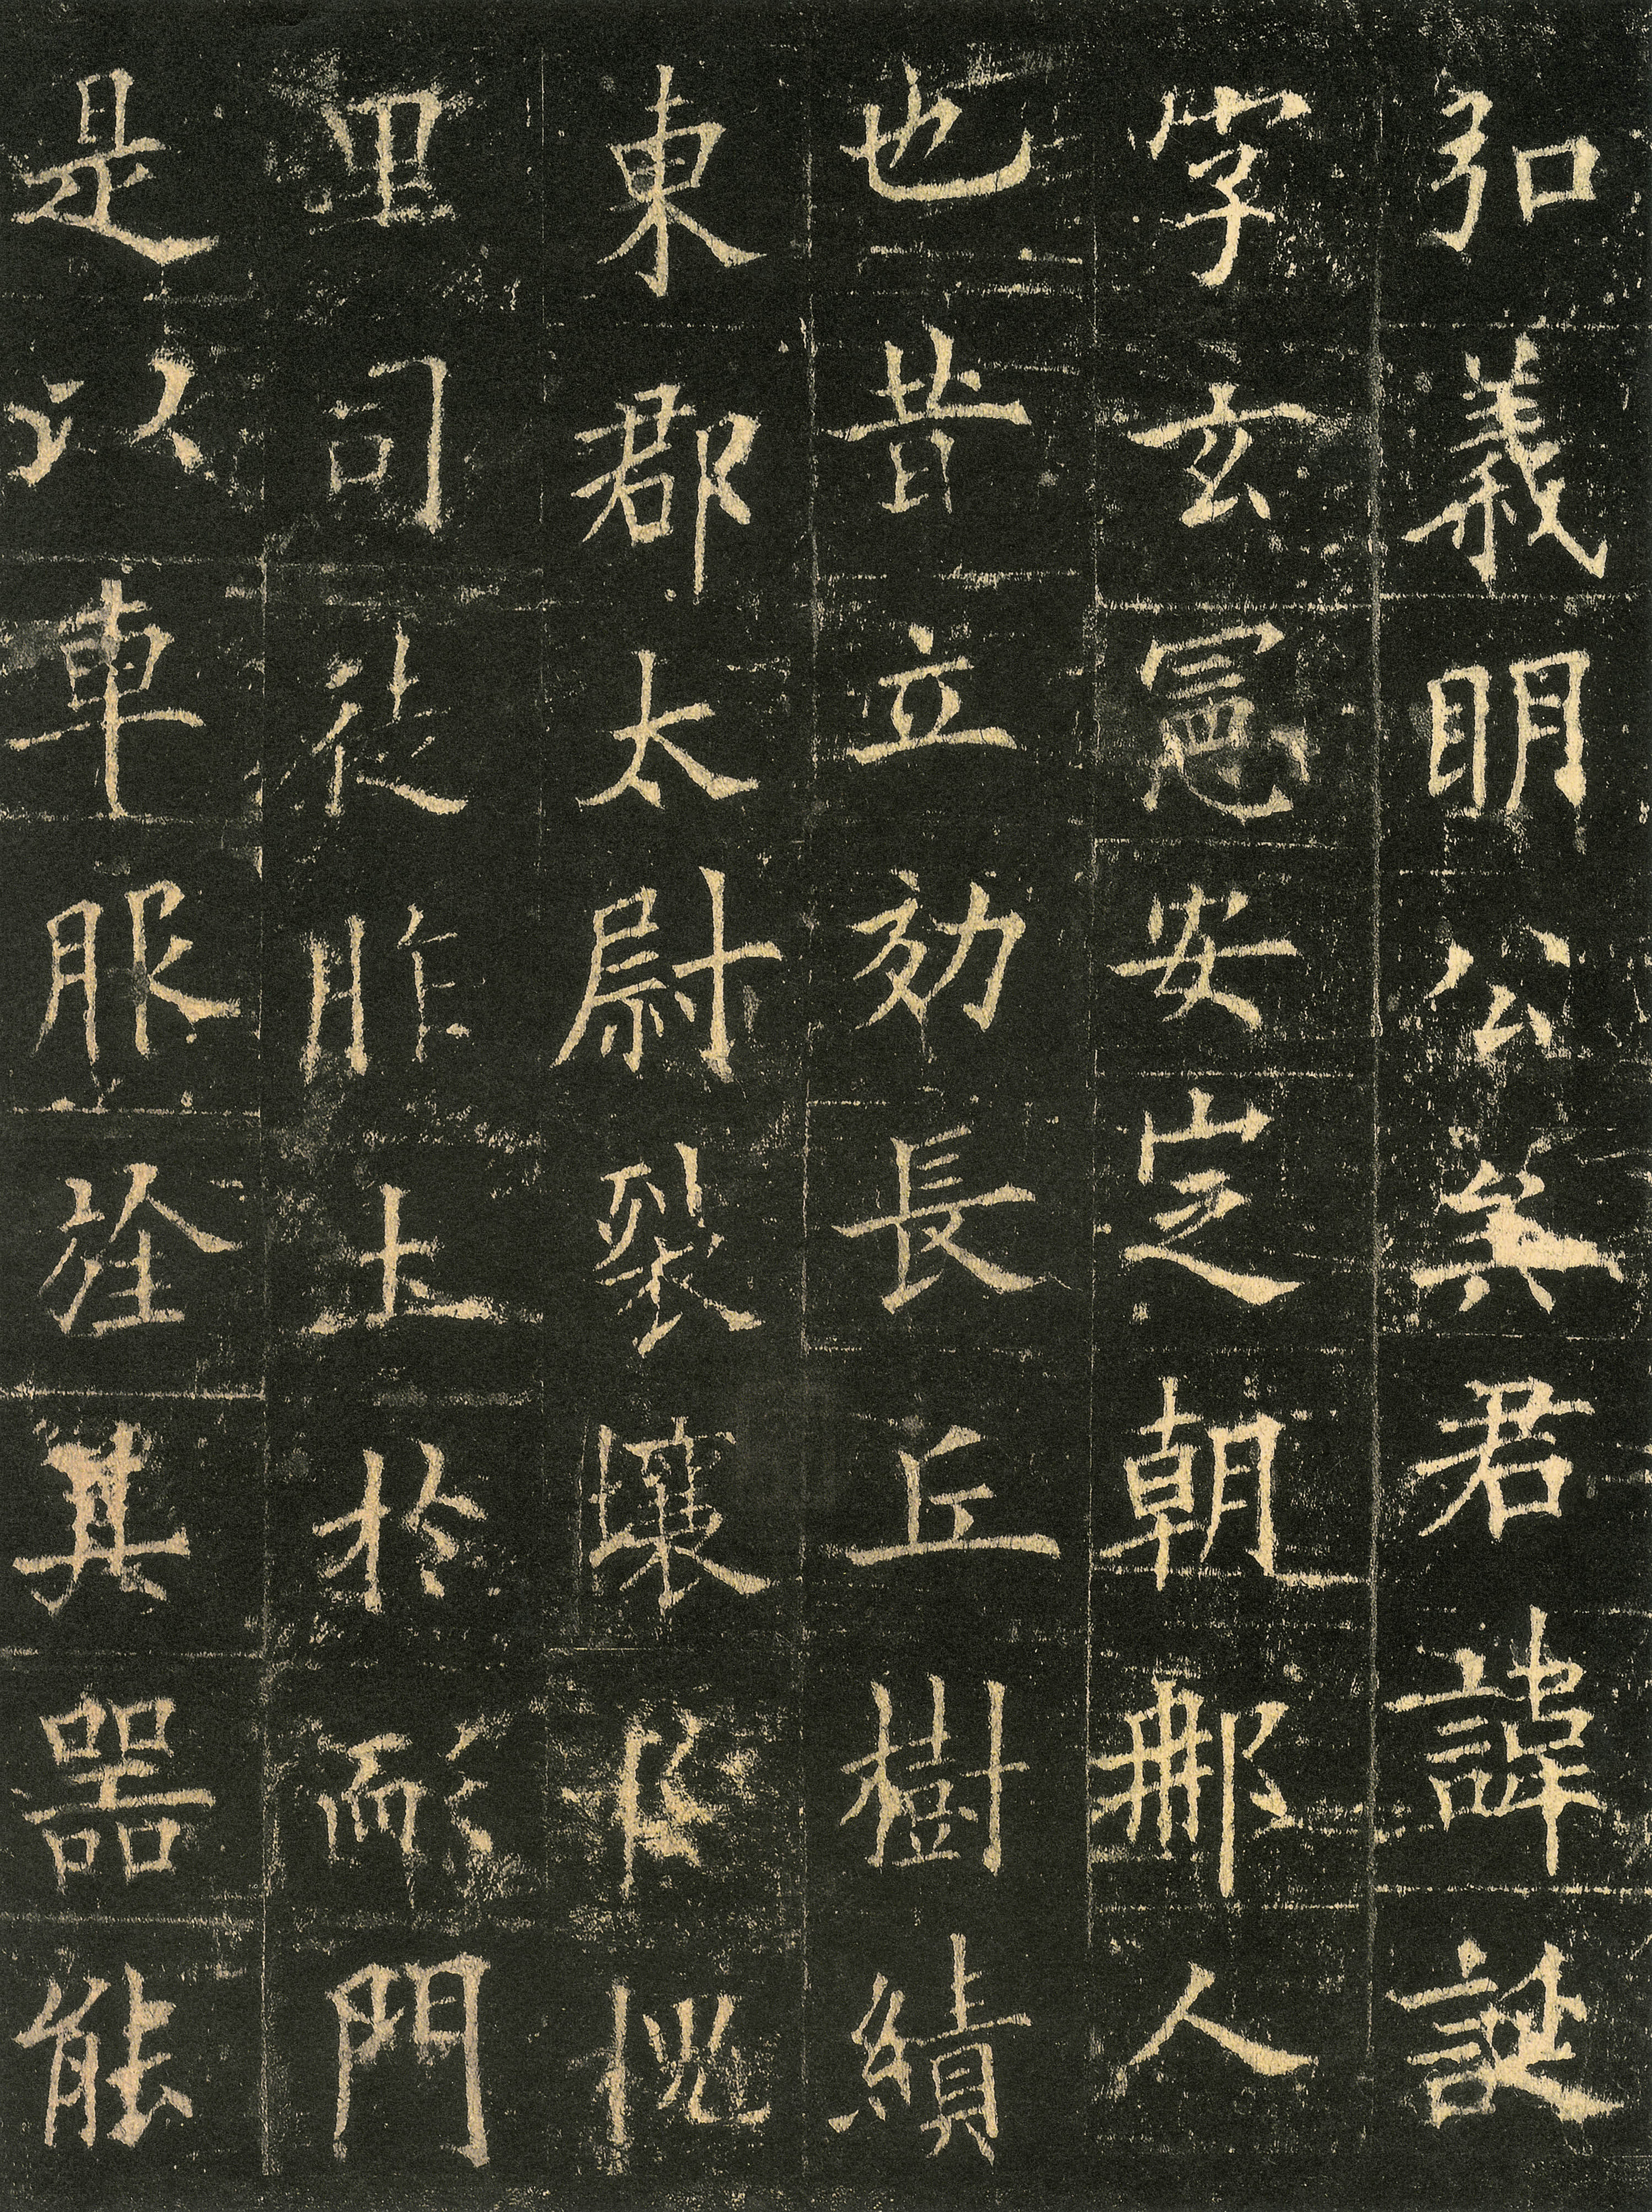 弘義眀公矣君諱誕
字玄憲安定朝那人
也昔立効長丘樹績
東郡太尉裂壤扵槐
里司徒胙土扵耏門
是以車服旌其器能